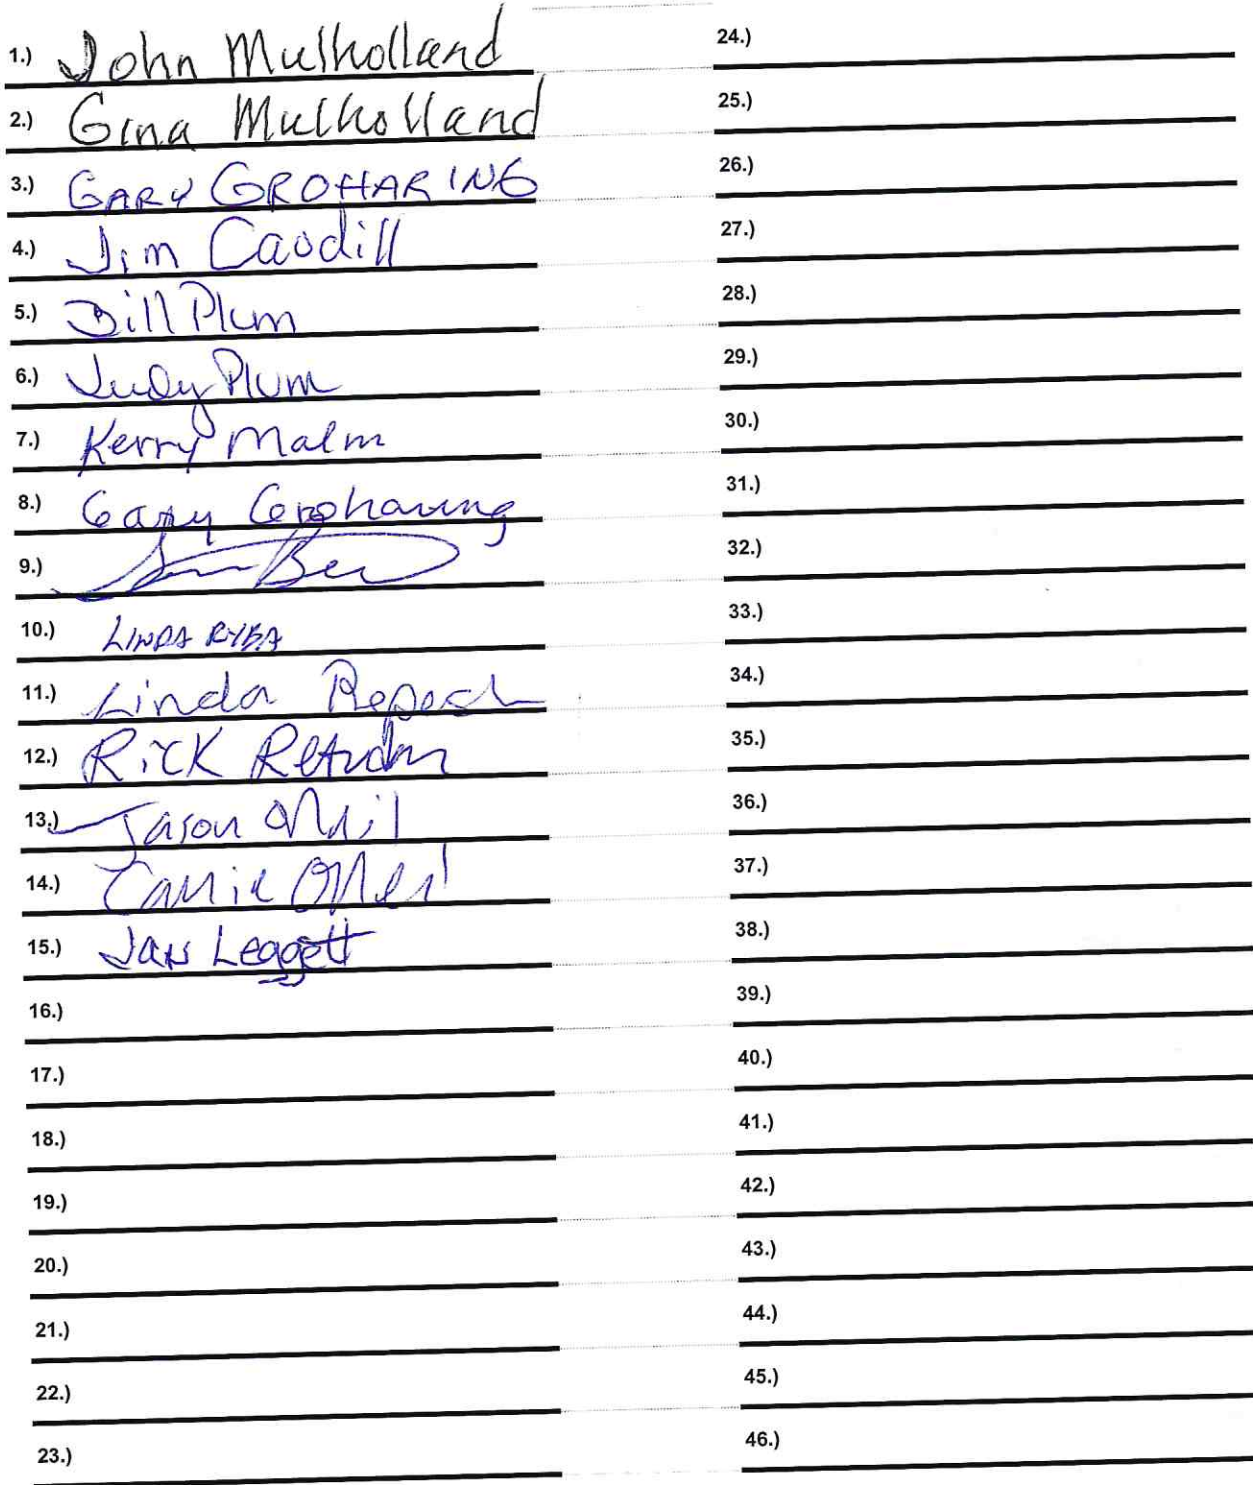 1.) John Mulholland
2.) Gina Mulholland
3.) GARY GROHARING
4.) Jim Caudill
5.) Bill Plum
6.) Judy Plum
7.) Kerry Malm
8.) Gary Groharing
9.)
10.) LINDA RYBA
11.) Linda Repash
12.) Rick
13.) Jason ONeil
14.) Carrie ONeil
15.) Jan Leggett
16.)
17.)
18.)
19.)
20.)
21.)
22.)
23.)
24.)
25.)
26.)
27.)
28.)
29.)
30.)
31.)
32.)
33.)
34.)
35.)
36.)
37.)
38.)
39.)
40.)
41.)
42.)
43.)
44.)
45.)
46.)